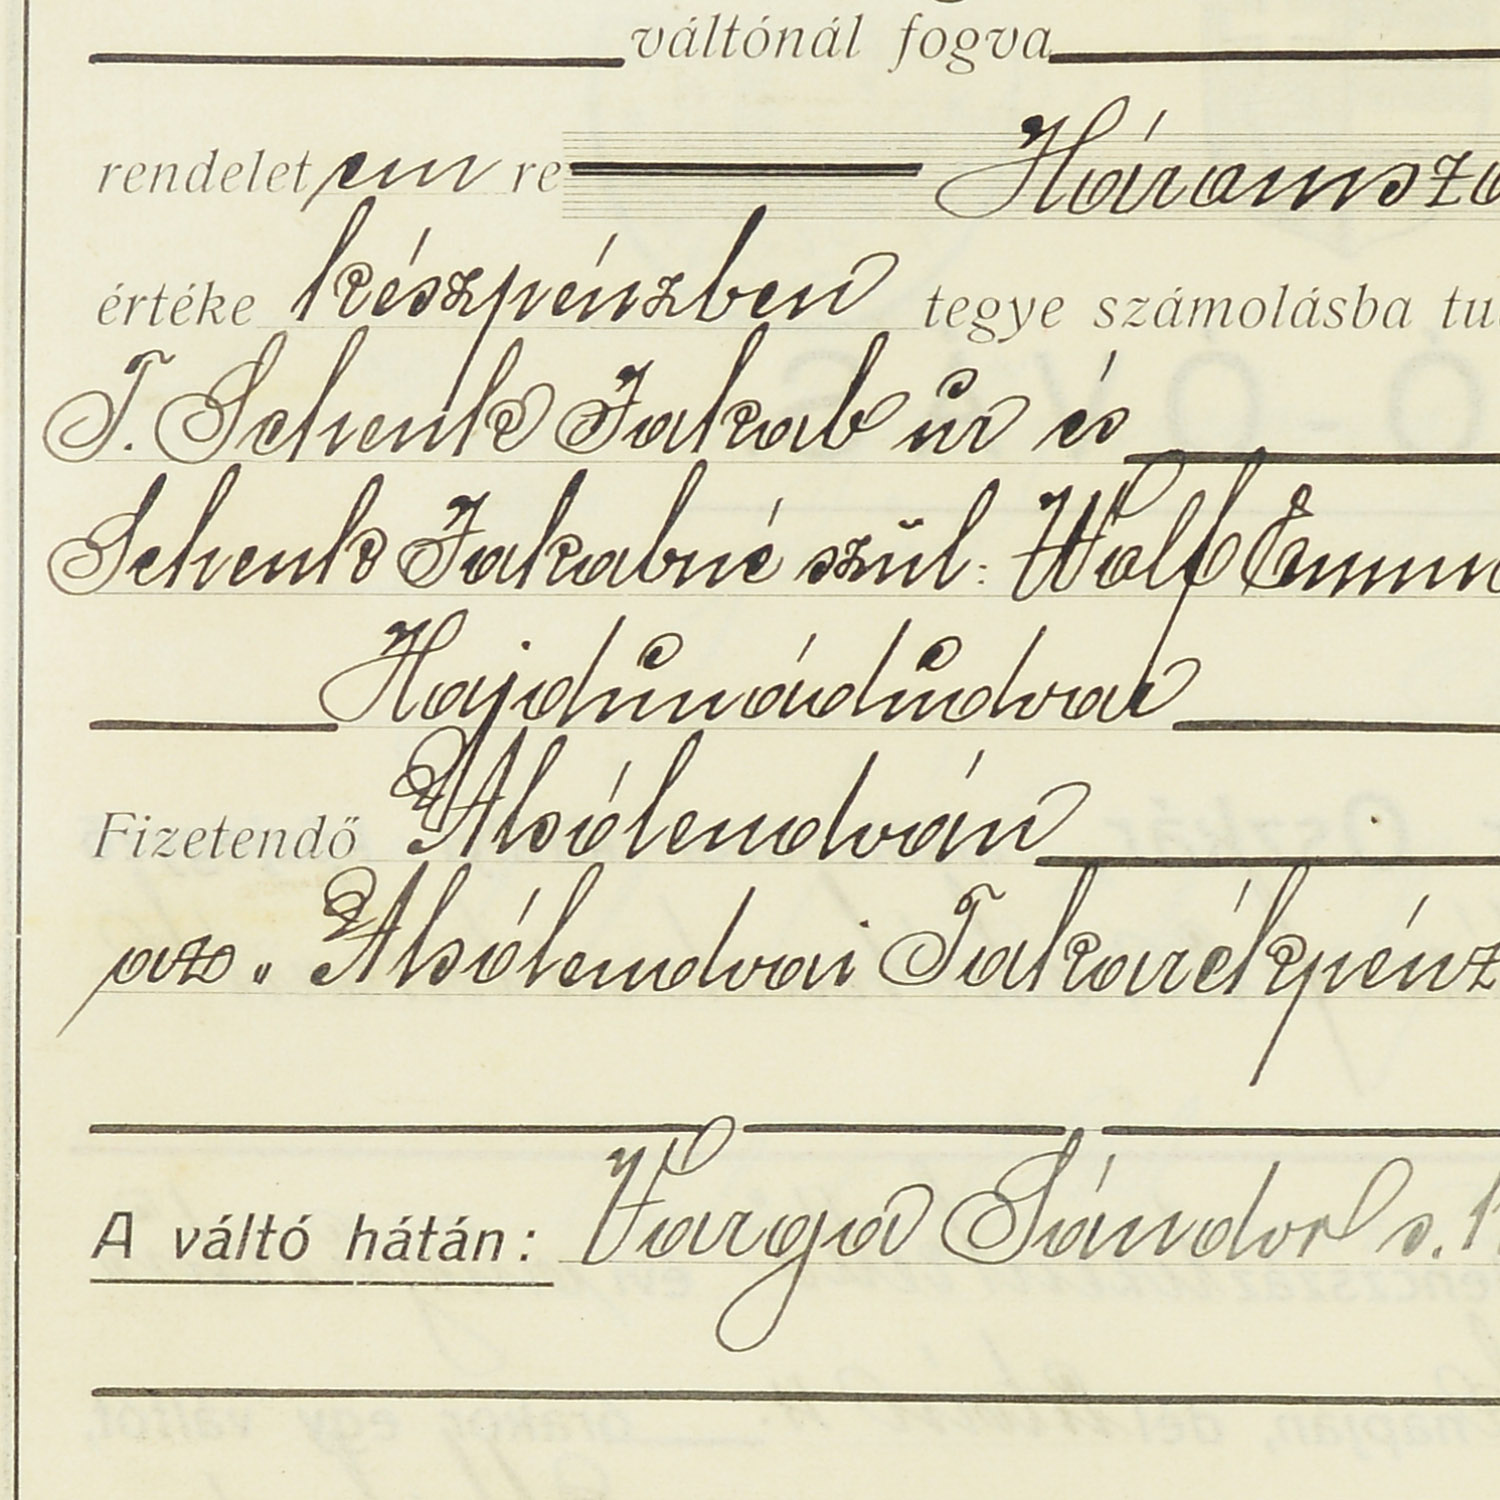 váltónál fogva
rendeletem re Háromszá
értéke készpénzben tegye számolásba
T. Schenk Jakab úr és
Schenk Jakabné szül: Wolf Emma
Hajdunádudvar
Fizetendő Alsólendván
az „ Alsólendvai Takarékpénz
A váltó hátán: Varga Sándor s. k